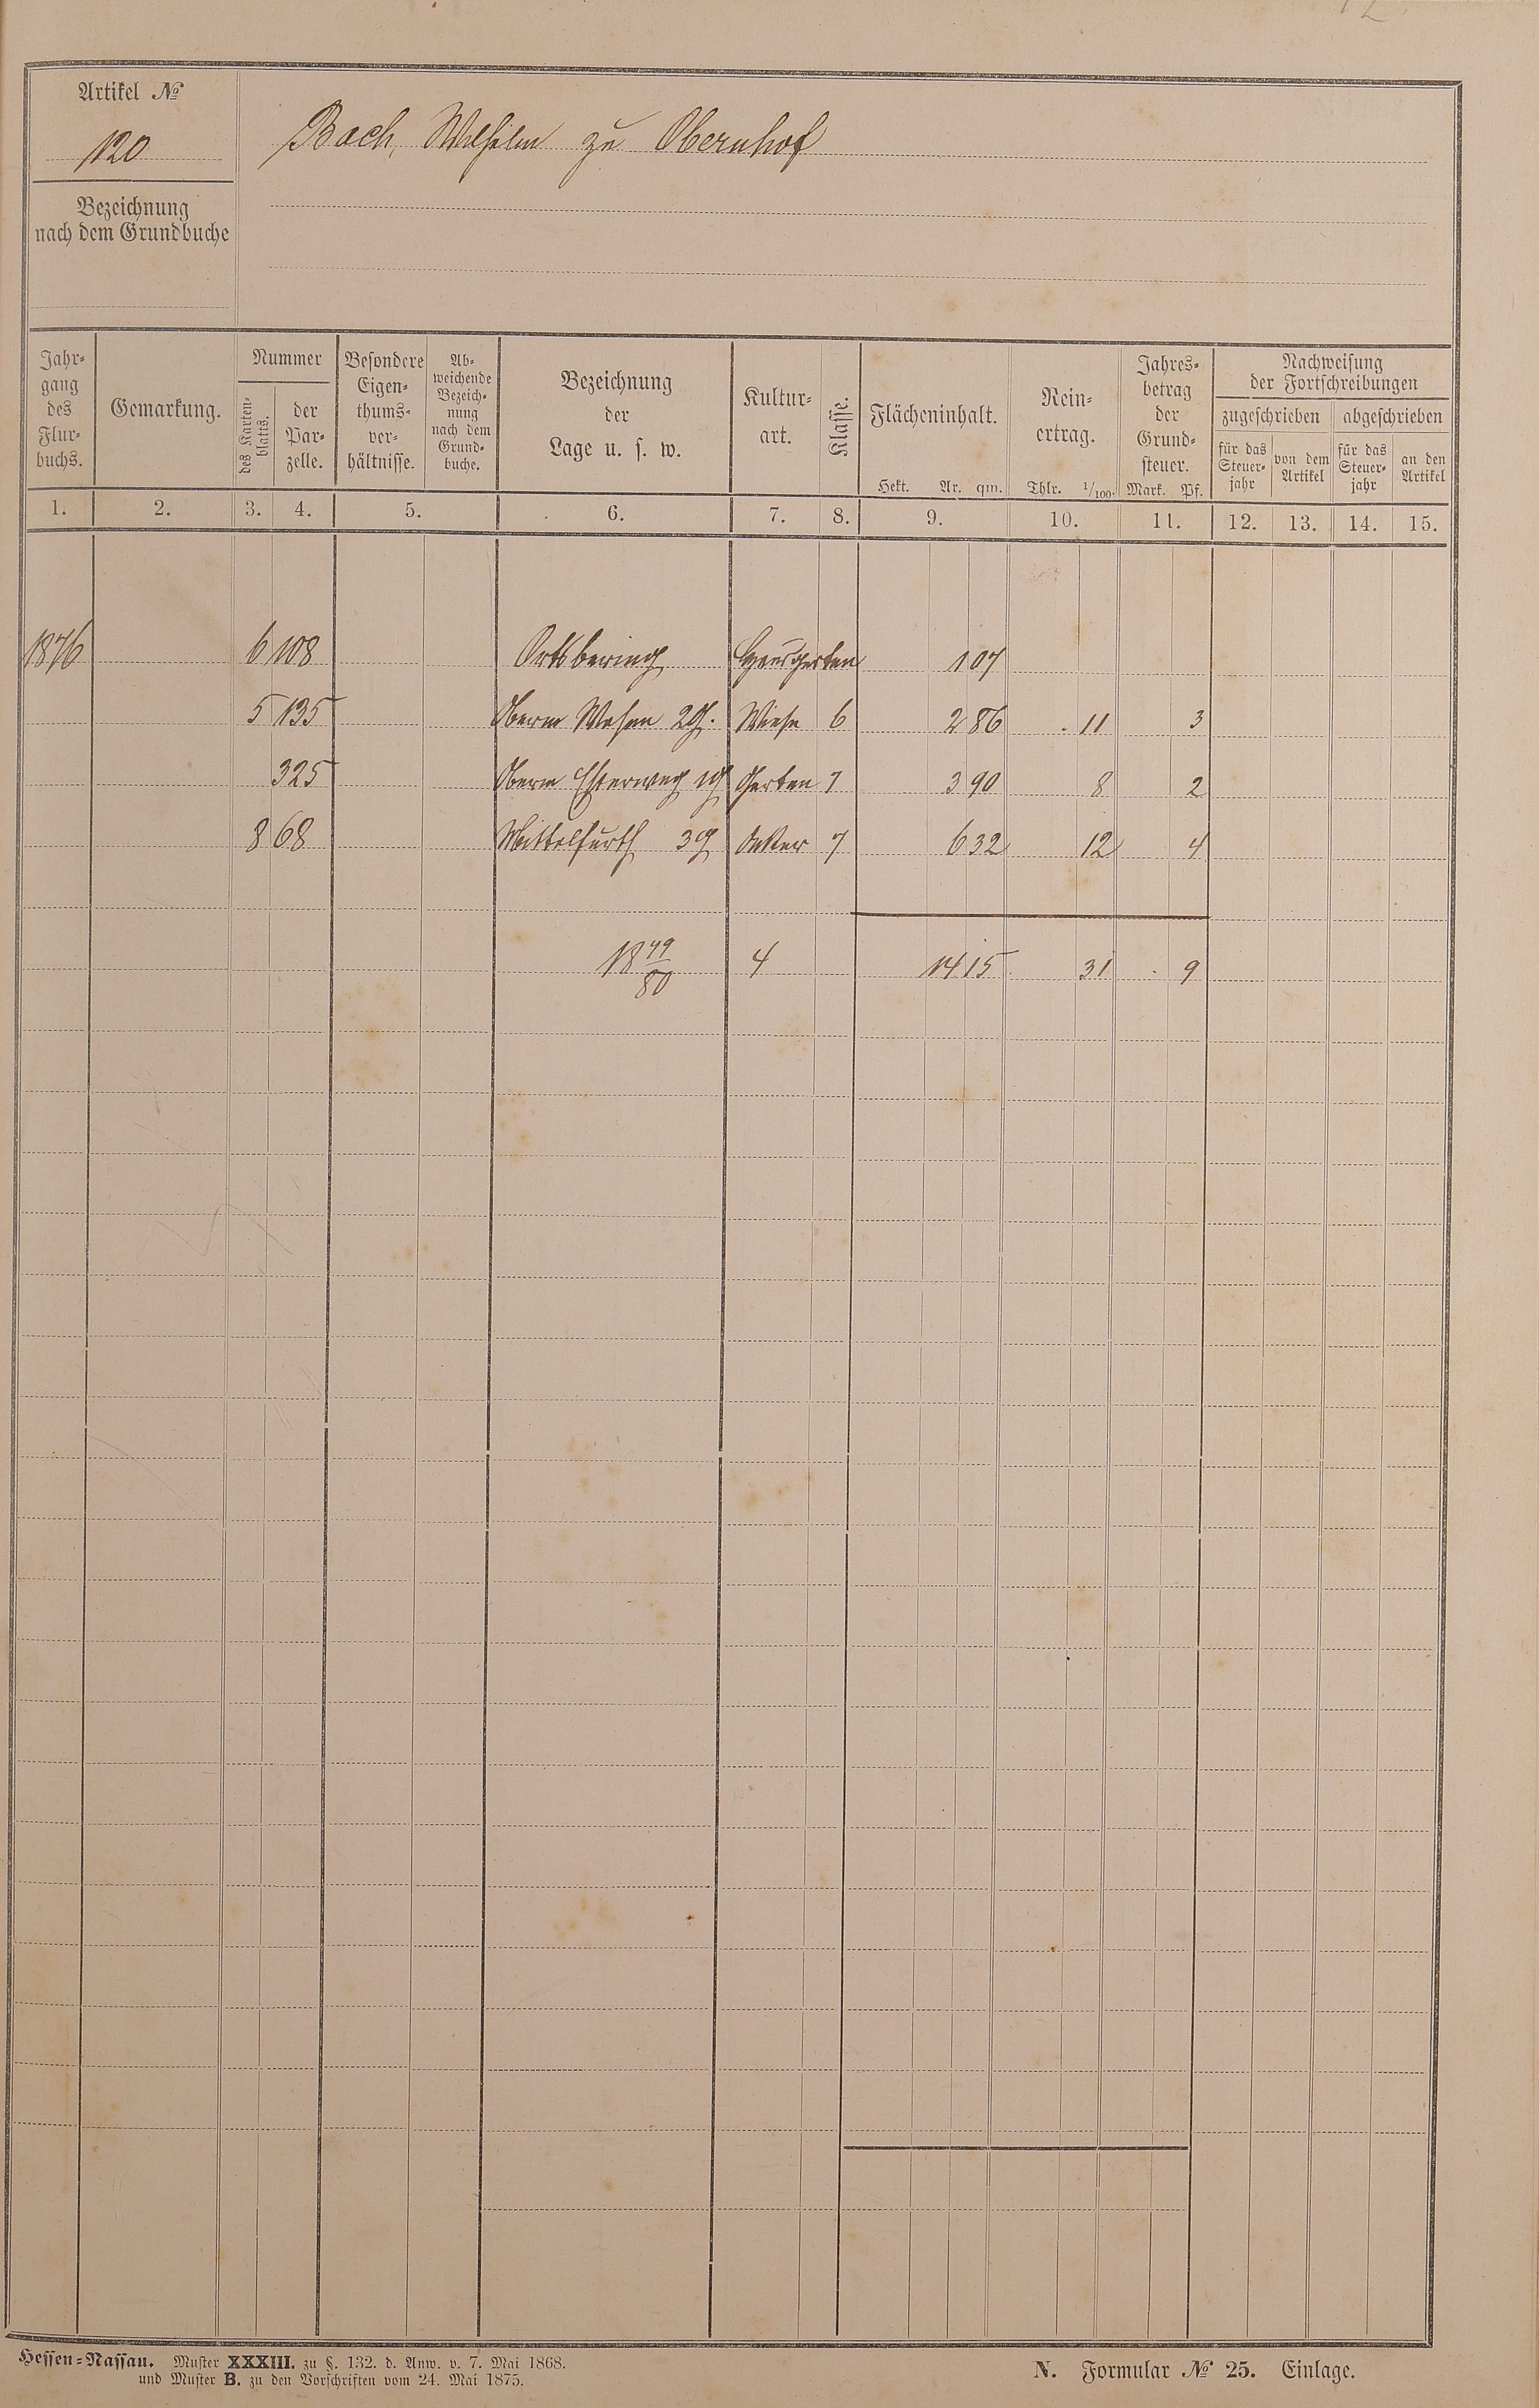 Artikel №
120
Bach, Wilhelm zu Obernhof
Bezeichnung
nach dem Grundbuche
Jahr-
gang
des
Flur-
buchs.
Gemarkung.
Nummer
des Karten-
blatts.
der
Par-
zelle.
Besondere
Eigen-
thums-
ver-
hältnisse.
Ab-
weichende
Bezeich-
nung
nach dem
Grund-
buche.
Bezeichnung
der
Lage u. s. w.
Kultur-
art.
Klasse.
Flächeninhalt.
Hekt. Ar. qm.
Rein-
ertrag.
Thlr. 1/100.
Jahres-
betrag
der
Grund-
steuer.
Mark. Pf.
Nachweisung
der Fortschreibungen
zugeschrieben abgeschrieben
für das
Steuer-
jahr
von dem
Artikel
für das
Steuer-
jahr
an den
Artikel
1. 2. 3. 4. 5. 6. 7. 8. 9. 10. 11. 12. 13. 14. 15.
1876 6 108 Ortsbering Hausgarten 1 07
5 135 Oberm 2g. Wiese 6 2 86 11 3
325 Oberm 1g Garten 7 3 90 8 2
8 68 Mittelfurth 3g Acker 7 6 32 12 4
18 79/80 4 14 15 31 9
Hessen-Nassau. Muster XXXIII. zu §. 132. d. Anw. v. 7. Mai 1868.
und Muster B. zu den Vorschriften vom 24. Mai 1875.
N. Formular № 25. Einlage.